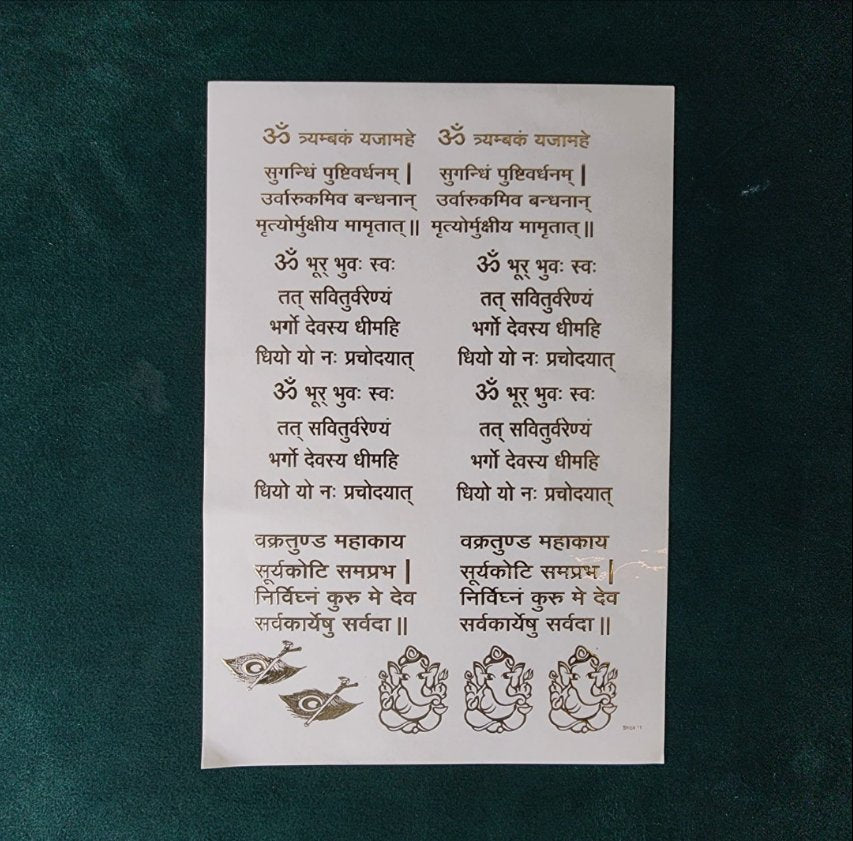 ॐ त्र्यम्बकं यजामहे
सुगन्धिं पुष्टिवर्धनम् |
उर्वारुकमिव बन्धनान्
मृत्योर्मुक्षीय मामृतात् ||
ॐ त्र्यम्बकं यजामहे
सुगन्धिं पुष्टिवर्धनम् |
उर्वारुकमिव बन्धनान्
मृत्योर्मुक्षीय मामृतात् ||
ॐ भूर् भुवः स्वः
तत् सवितुर्वरेण्यं
भर्गो देवस्य धीमहि
धियो यो नः प्रचोदयात्
ॐ भूर् भुवः स्वः
तत् सवितुर्वरेण्यं
भर्गो देवस्य धीमहि
धियो यो नः प्रचोदयात्
ॐ भूर् भुवः स्वः
तत् सवितुर्वरेण्यं
भर्गो देवस्य धीमहि
धियो यो नः प्रचोदयात्
ॐ भूर् भुवः स्वः
तत् सवितुर्वरेण्यं
भर्गो देवस्य धीमहि
धियो यो नः प्रचोदयात्
वक्रतुण्ड महाकाय
सूर्यकोटि समप्रभ |
निर्विघ्नं कुरु मे देव
सर्वकार्येषु सर्वदा ||
वक्रतुण्ड महाकाय
सूर्यकोटि समप्रभ |
निर्विघ्नं कुरु मे देव
सर्वकार्येषु सर्वदा ||